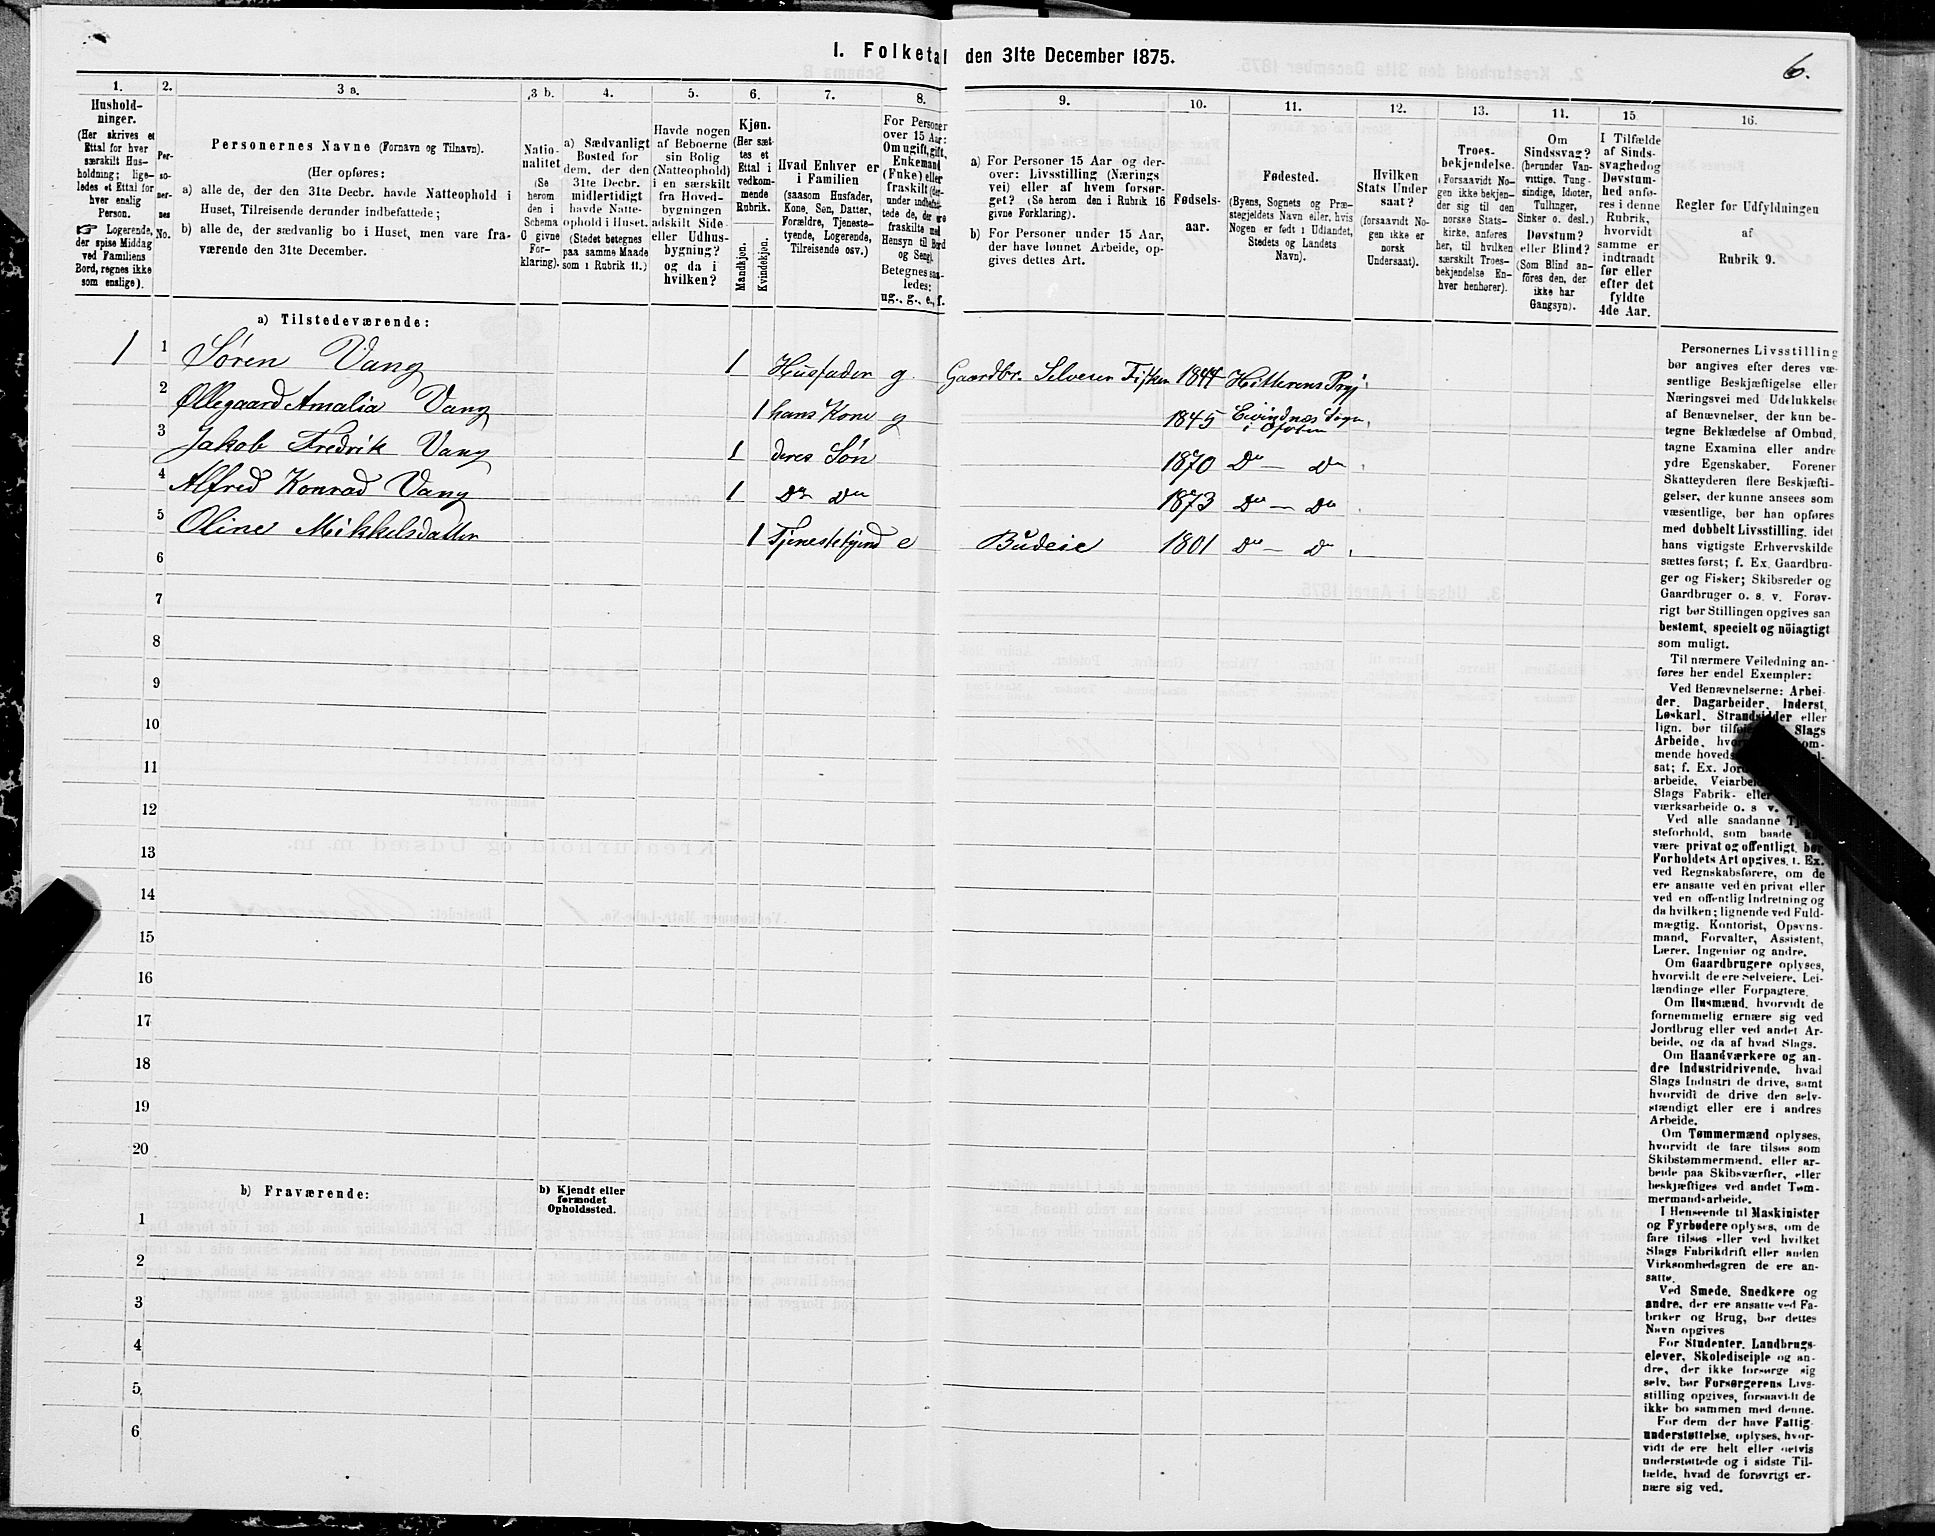 I. Folketal den 31te December 1875.
6.
1.
Hushold-
ninger.
(Her skrives et
Ettal for hver
særskilt Hus-
holdning; lige-
ledes et Ettal for
hver enslig
Person.
Logerende,
der spise Middag
ved Familiens
Bord, regnes ikke
som enslige).
2.
Per-
so-
ner-
nes
No.
3 a.
Personernes Navne (Fornavn og Tilnavn).
(Her opføres:
a) alle de, der den 31te Decbr. havde Natteophold i
Huset, Tilreisende derunder indbefattede;
b) alle de, der sædvanlig bo i Huset, men vare fra-
værende den 31te December.
3 b.
Natio-
nalitet
(Se
herom
den i
Schema
O givne
For-
klaring).
4.
a) Sædvanligt
Bosted for
dem, der den
31te Decbr.
midlertidigt
havde Natte-
ophold i Huset.
(Stedet betegnes
paa samme Maade
som i Rubrik 11.)
5.
Havde nogen
af Beboerne
sin Bolig
(Natteophold)
i en særskilt
fra Hoved-
bygningen
adskilt Side-
eller Udhus-
bygning?
og da i
hvilken?
6.
Kjøn.
(Her sæt-
tes et
Ettal i
vedkom-
mende
Rubrik.
Mandkjøn.
Kvindekjøn.
7.
Hvad Enhver er
i Familien
(saasom Husfader,
Kone, Søn, Datter,
Forældre, Tjeneste-
tyende, Logerende,
Tilreisende osv.)
8.
For Personer
over 15 Aar:
Om ugift, gift,
Enkemand
(Enke) eller
fraskilt (der-
under indbefat-
tede de, der ere
fraskilte med
Hensyn til Bord
og Seng).
Betegnes saa-
ledes:
ug., g., e., f.
9.
a) For Personer 15 Aar og der-
over: Livsstilling (Nærings-
vei) eller af hvem forsør-
get? (Se herom den i Rubrik 16
givne Forklaring).
b) For Personer under 15 Aar,
der have lønnet Arbeide, op-
gives dettes Art.
10.
Fødsels-
aar.
11.
Fødested.
(Byens, Sognets og Præ-
stegjeldets Navn eller, hvis
Nogen er født i Udlandet,
Stedets og Landets
Navn).
12.
Hvilken
Stats Under-
saat?
(forsaavidt No-
gen ikke er
norsk
Undersaat).
13.
Troes-
bekjendelse.
(Forsaavidt No-
gen ikke bekjen-
der sig til den
norske Stats-
kirke, anføres
her, til hvilken
særskilt Troes-
bekjendelse En-
hver henhører).
14.
Om
Sindssvag?
(herunder Van-
vittige, Tung-
sindige, Idioter,
Tullinger,
Sinker o. desl.)
Døvstum?
eller Blind?
(Som Blind an-
føres den, der
ikke har
Gangsyn).
15
I Tilfælde
af Sinds-
svaghed og
Døvstum-
hed anfø-
res i denne
Rubrik,
hvorvidt
samme er
indtraadt
før eller
efter det
fyldte
4de Aar.
16.
Regler for Udfyldningen
af
Rubrik 9.
a) Tilstedeværende:
1 1 Søren Vang 1 Husfader g Gaardbr. Selveier Fisker 1844 Hitterens Prgj.
2 Øllegaard Amalia Vang 1 hans Kone g 1845 Eivindnæs Sogn
i Ofoten
3 Jakob Fredrik Vang 1 deres Søn 1870 Do — Do
4 Alfred Konrad Vang 1 Do Do 1873 Do — Do
5 Oline Mikkelsdatter 1 Tjenestetyend e Budeie 1801 Do — Do
6
7
8
9
10
11
12
13
14
15
16
17
18
19
20
b) Fraværende:
b) Kjendt eller
formodet
Opholdssted.
1
2
3
4
5
6
Personernes Livsstilling
bør angives efter deres væ-
sentlige Beskjæftigelse eller
Næringsvei med Udelukkelse
af Benævnelser, der kun be-
tegne Beklædelse af Ombud,
tagne Examina eller andre
ydre Egenskaber. Forener
Skatteyderen flere Beskjæfti-
gelser, der kunne ansees som
væsentlige, bør han opføres
med dobbelt Livsstilling, idet
hans vigtigste Erhvervskilde
sættes først; f. Ex. Gaardbru-
ger og Fisker; Skibsreder og
Gaardbruger o. s. v. Forøv-
rigt bør Stillingen opgives saa
bestemt, specielt og nöiagtigt
som muligt.
Til nærmere Veiledning an-
føres her endel Exempler:
Ved Benævnelserne: Arbei-
der, Dagarbeider, Inderst,
Løskarl, Strandsidder eller
lign. bør Slags
Arbeide,
mende
sat; f. Ex.
arbeide,
Slags Fabrik- eller
værksarbeide o. s. v.
Ved alle saadanne
steforhold, som baade
være privat og offentligt, bør
Forholdets Art opgives, f. Ex.
ved Regnskabsførere, om de
ere ansatte ved en privat eller
ved en offentlig Indretning og
da hvilken; lignende ved Fuld-
mægtig, Kontorist, Opsyns-
mand, Forvalter, Assistent,
Lærer, Ingeniør og andre.
Om Gaardbrugere oplyses,
hvorvidt de ere Selveiere, Lei-
lændinge eller Forpagtere.
Om Husmænd, hvorvidt de
fornemmelig ernære sig ved
Jordbrug eller ved andet Ar-
beide, og da af hvad Slags.
Om Haandværkere og an-
dre Industridrivende, hvad
Slags Industri de drive, samt
hvorvidt de drive den selv-
stændigt eller ere i andres
Arbeide.
Om Tømmermænd oplyses,
hvorvidt de fare tilsøs som
Skibstømmermænd, eller ar-
beide paa Skibsværfter, eller
beskjæftiges ved andet Tøm-
mermandsarbeide.
I Henseende til Maskinister
og Fyrbødere oplyses, om de
fare tilsøs eller ved hvilket
Slags Fabrikdrift eller anden
Virksomhedsgren de ere an-
satte.
Ved Smede, Snedkere og
andre, der ere ansatte ved Fa-
briker og Brug, bør dettes
Navn opgives
For Studenter, Landbrugs-
elever, Skoledisciple og an-
dre, der ikke forsørge sig
selv, bør Forsørgerens Livs-
stilling opgives, forsaavidt de
ikke bo sammen med denne.
For dem, der have Fattig-
understøttelse, oplyses, hvor-
vidt de ere helt eller delvis
understøttede og i sidste Til-
fælde, hvad de forøvrigt er-
nære sig ved.